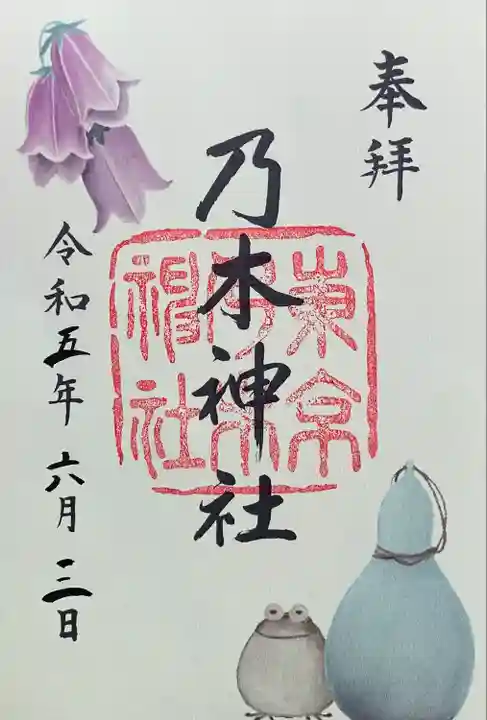 奉拝
乃木神社
東京
乃木
神社
令和五年 六月 三日